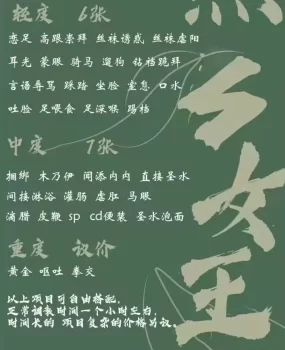 轻度 6张
恋足 高跟崇拜 丝袜诱惑 丝袜虐阳
耳光 蒙眼 骑马 遛狗 钻裆跪拜
言语辱骂 踩踏 坐脸 窒息 口水
吐脸 足喂食 足深喉 踢裆
中度 7张
捆绑 木乃伊 闻舔内内 直接圣水
间接淋浴 灌肠 虐肛 马眼
滴腊 皮鞭 sp cd便装 圣水泡面
重度 议价
黄金 呕吐 拳交
以上项目可自由搭配,
正常调教时间一个小时左右,
时间长的 项目复杂的价格另议。
女王